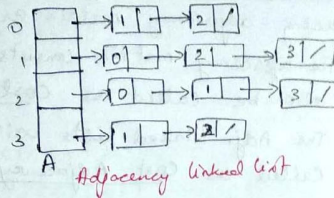 0 1 2 /
1 0 2 3 /
2 0 1 3 /
3 1 2 /
A
Adjacency linked list